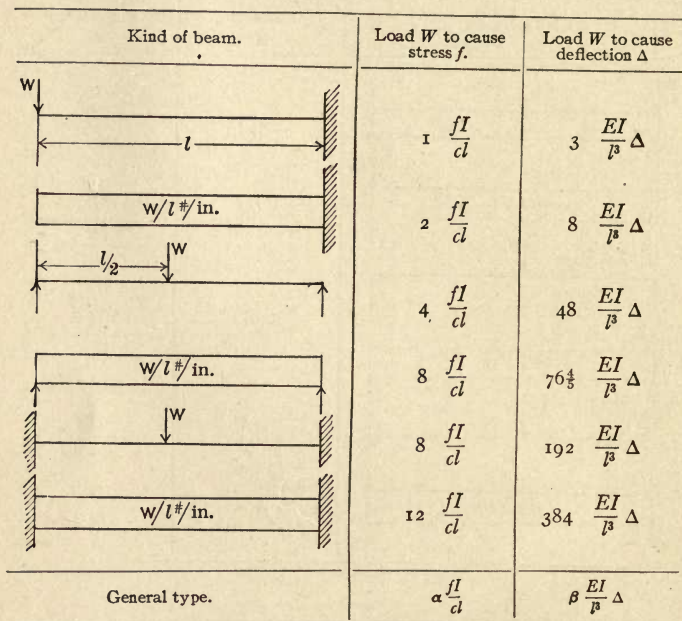 Kind of beam. Load W to cause stress f. Load W to cause deflection Δ
W
l
1 fI/cl 3 EI/l³ Δ
W/l #/in.
2 fI/cl 8 EI/l³ Δ
l/2 W
4 fI/cl 48 EI/l³ Δ
W/l #/in.
8 fI/cl 76⅘ EI/l³ Δ
W
8 fI/cl 192 EI/l³ Δ
W/l #/in.
12 fI/cl 384 EI/l³ Δ
General type. α fI/cl β EI/l³ Δ